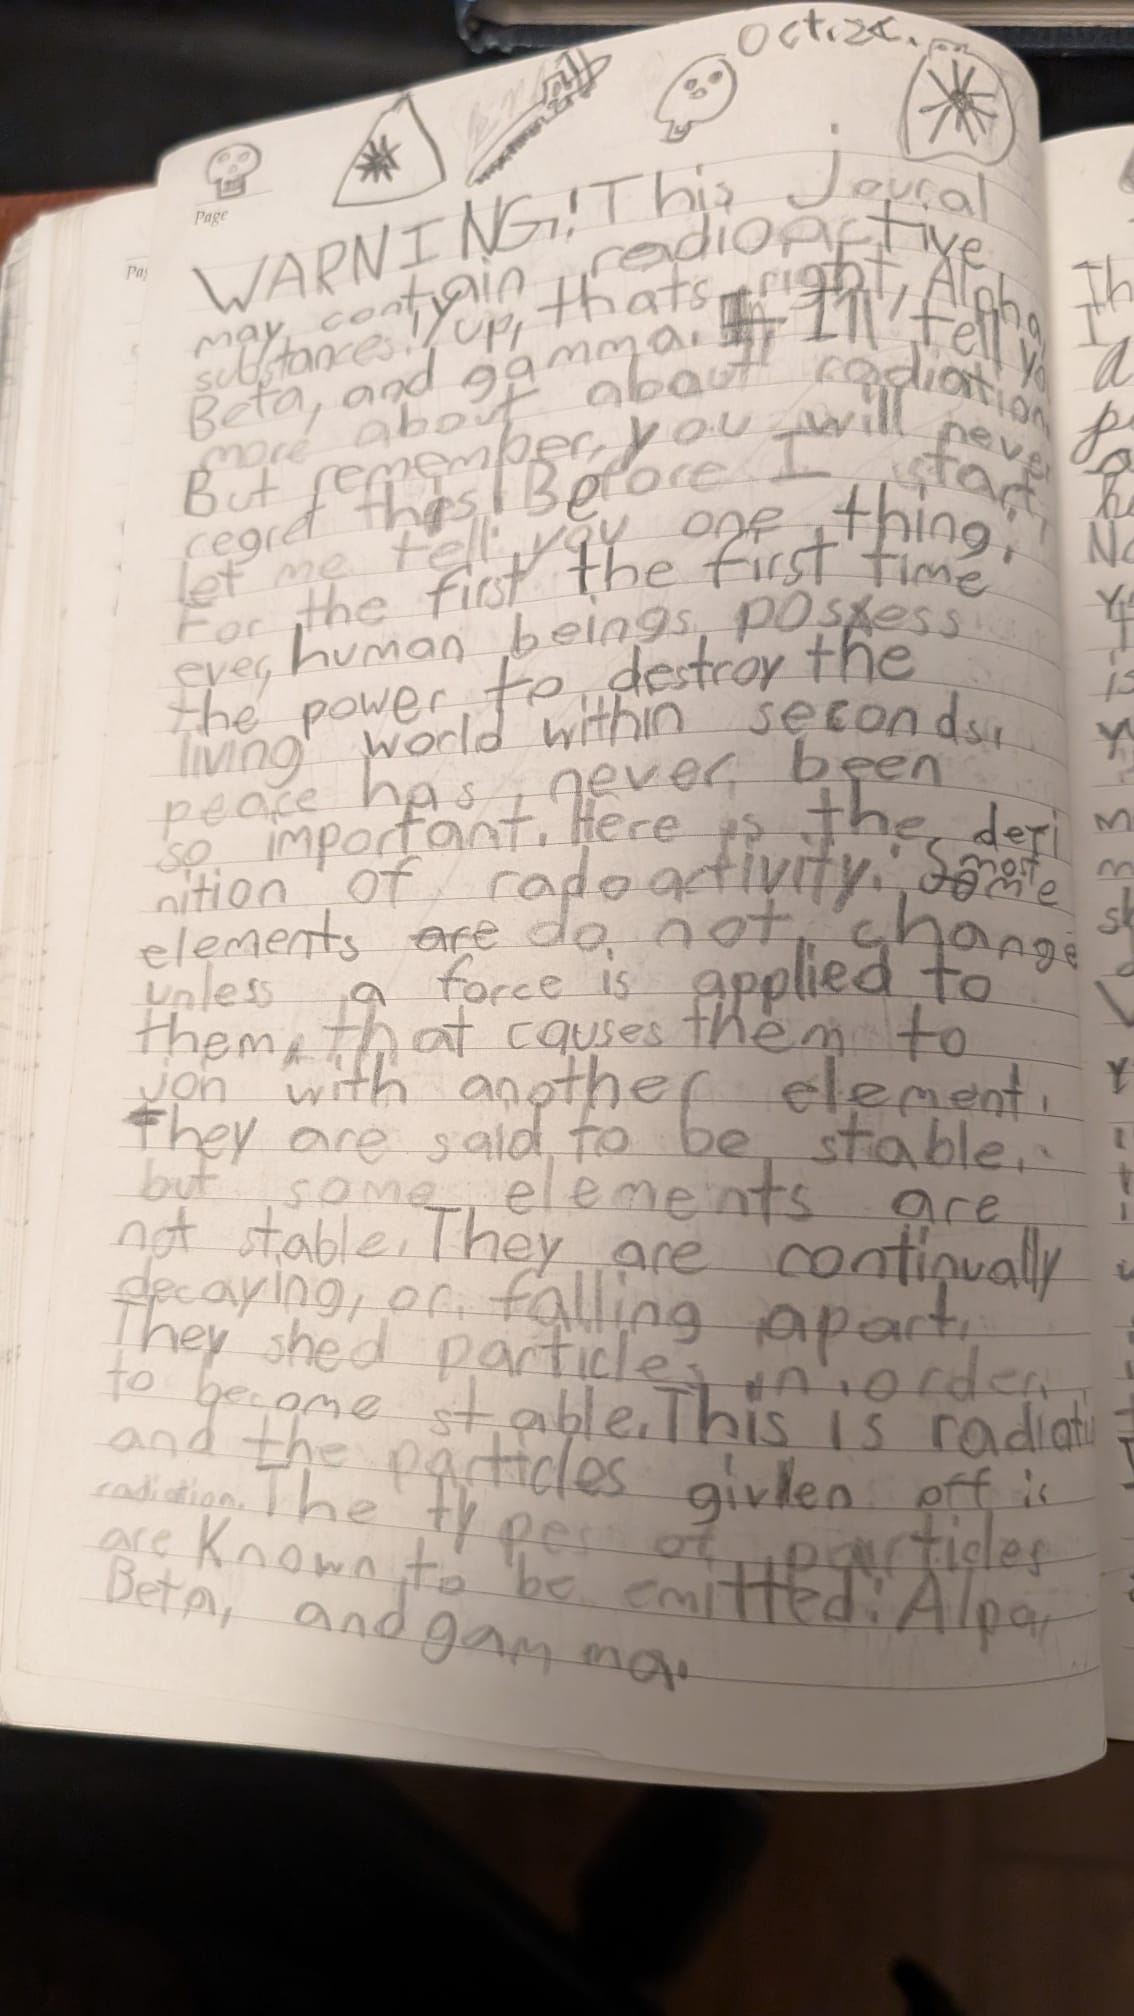 Oct. 24.
Page
WARNING! This joural
may contain radioactive
substances! yup, thats right, Alpha
Beta, and gamma. I'll tell
more about about radiation
But remember, you will never
regret this! Before I start,
let me tell you one thing:
For the first the first time
ever, human beings possess
the power to destroy the
living world within seconds,
peace has never been
so important. Here is the defi
nition of radoactivity: Some most
elements are do not change
unless a force is applied to
them, that causes them to
jon with another element.
They are said to be stable.
but some elements are
not stable. They are continually
decaying, or falling apart.
They shed particles in order
to become stable. This is radiati
and the particles given off is
radiation. The types of particles
are Known to be emitted: Alpa,
Beta, and gamma.